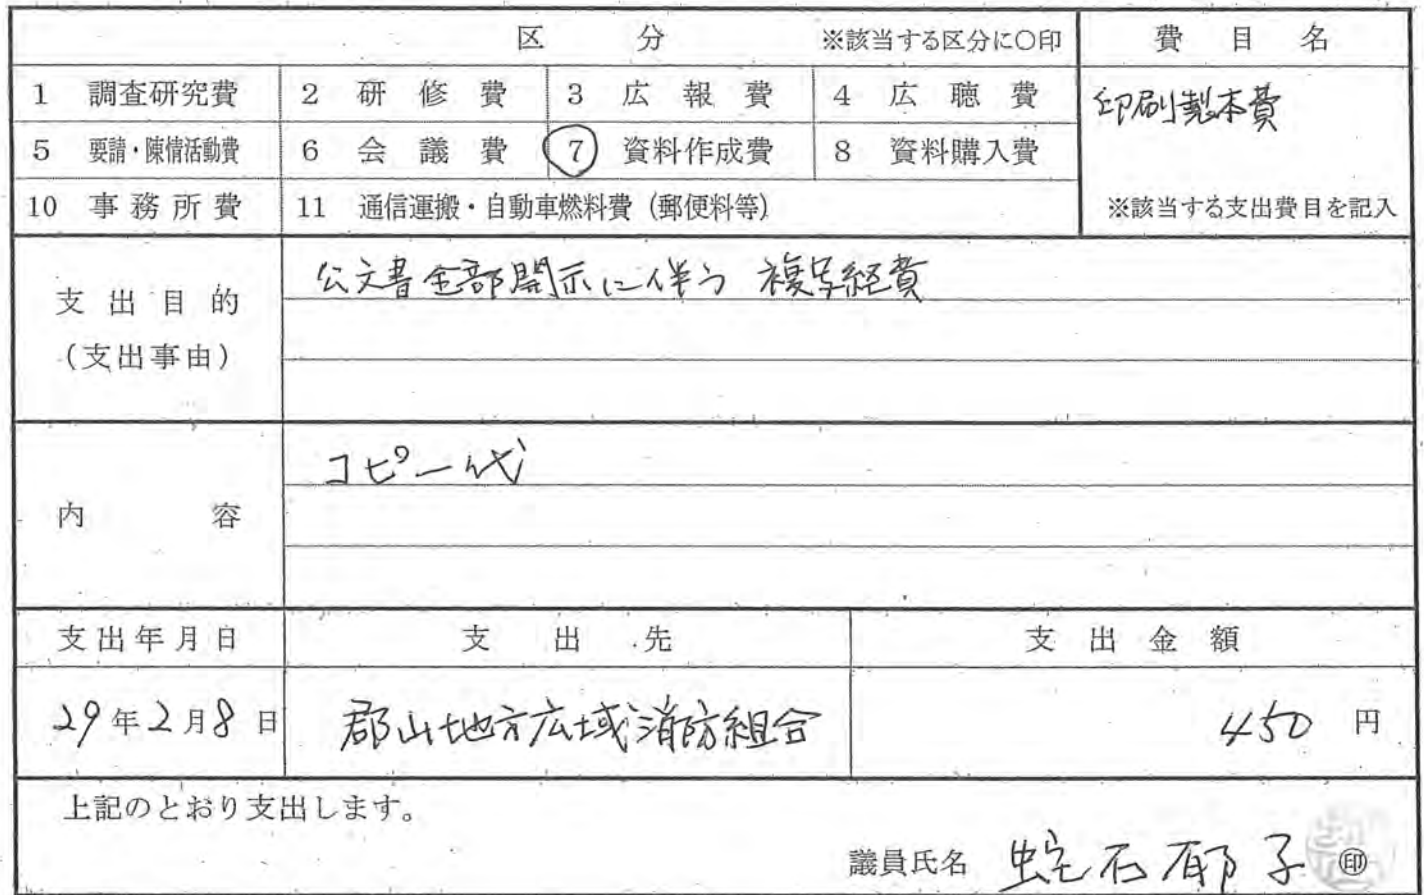 区　分　※該当する区分に〇印　費　目　名
1　調査研究費　2　研　修　費　3　広　報　費　4　広　聴　費　印刷製本費
5　要請・陳情活動費　6　会　議　費　7　資料作成費　8　資料購入費
10　事務所費　11　通信運搬・自動車燃料費（郵便料等）　※該当する支出費目を記入
支出目的　公文書全部開示に伴う 複写経費
（支出事由）
コピー代
内　容
支出年月日　支　出　先　支　出　金　額
29年2月8日　郡山地方広域消防組合　450 円
上記のとおり支出します。
議員氏名　蛇石郁子　㊞